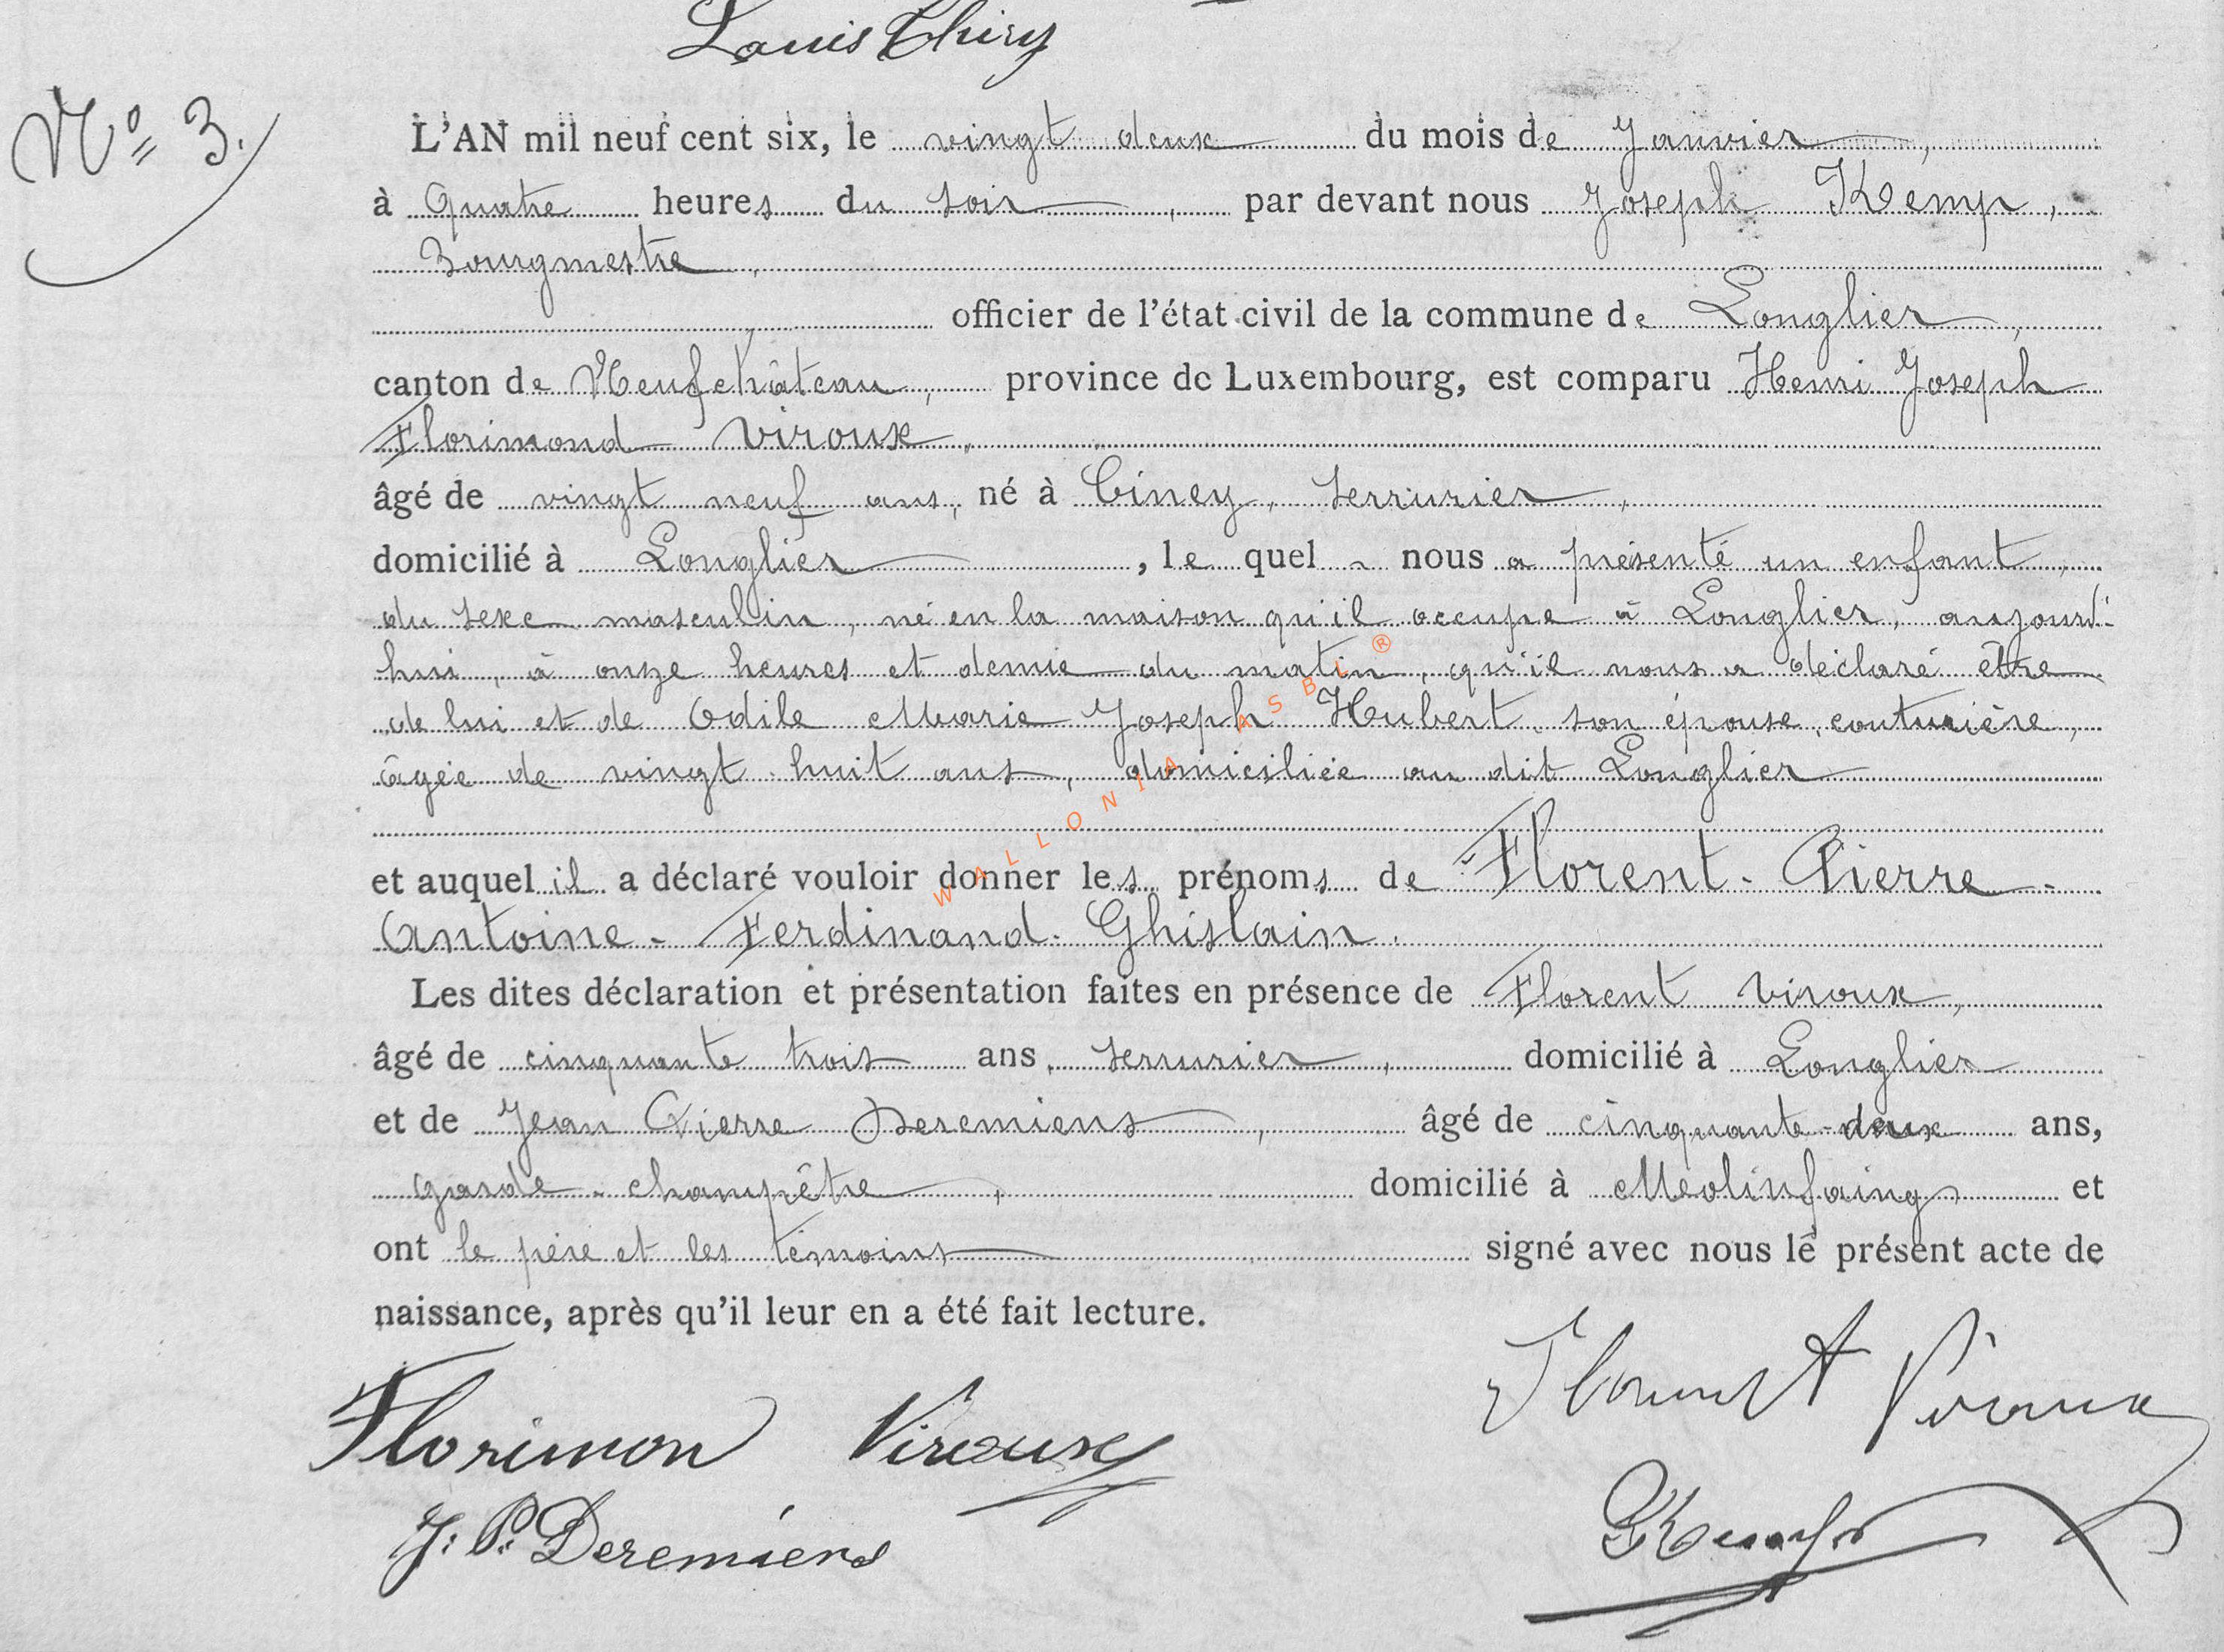 Louis Thiry
N° 3.
L'AN mil neuf cent six, le vingt deux du mois de Janvier,
à Quatre heures du soir, par devant nous Joseph Kemp,
Bourgmestre,
officier de l'état civil de la commune de Longlier,
canton de Neufchâteau, province de Luxembourg, est comparu Henri Joseph
Florimond Viroux,
âgé de vingt neuf ans, né à Ciney, serrurier,
domicilié à Longlier, le quel nous a présenté un enfant,
du sexe masculin, né en la maison qu'il occupe à Longlier, aujourd'
hui, à onze heures et demie du matin, qu'il nous a déclaré être
de lui et de Odile Marie Joseph Hubert son épouse, couturière,
âgée de vingt huit ans, domiciliée au dit Longlier
et auquel il a déclaré vouloir donner les prénoms de Florent - Pierre -
Antoine - Ferdinand - Ghislain.
Les dites déclaration et présentation faites en présence de Florent Viroux,
âgé de cinquante trois ans, serrurier, domicilié à Longlier
et de Jean Pierre Deremiens, âgé de cinquante-deux ans,
garde-champêtre, domicilié à Molinfaing et
ont le père et les témoins signé avec nous le présent acte de
naissance, après qu'il leur en a été fait lecture.
Florimon Viroux
Florent Viroux
J. P. Deremiens
JKemp
WALLONIA ASBL ®